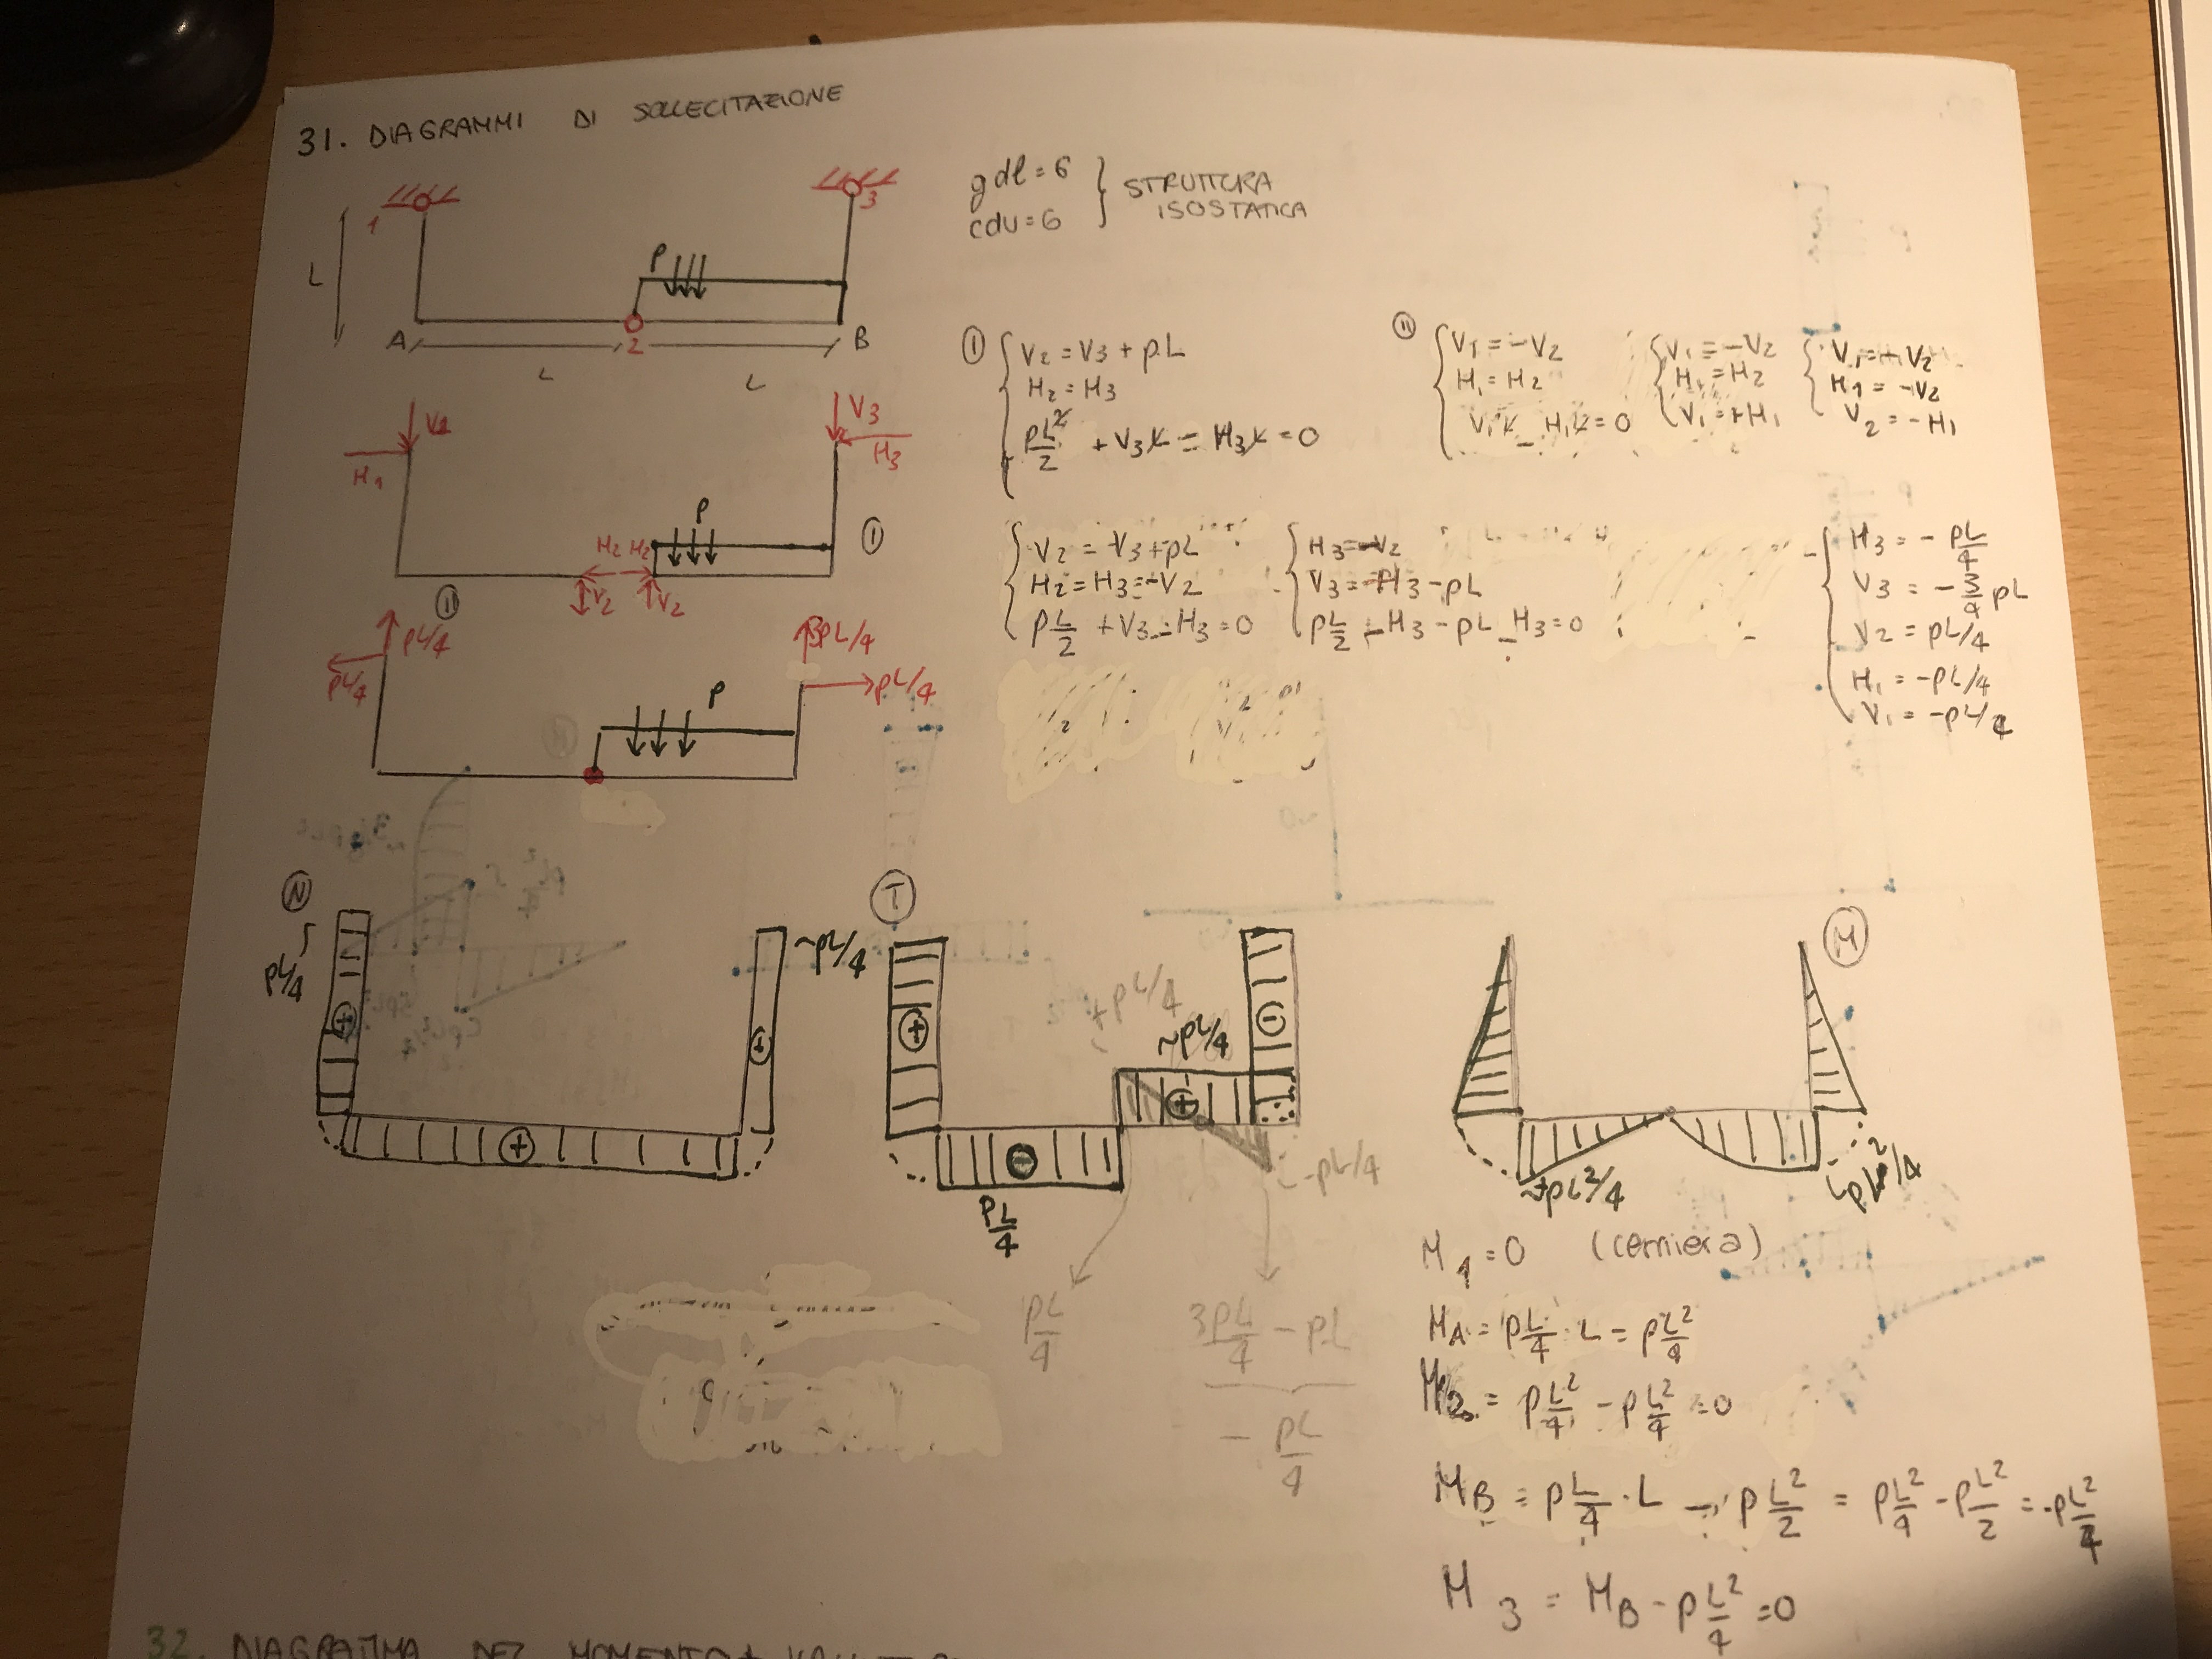 31. DIAGRAMMI DI SOLLECITAZIONE
gdl = 6
cdv = 6
STRUTTURA
ISOSTATICA
1
3
L
P
A
2
B
L
L
I
V2 = V3 + pL
H2 = H3
pL²/2 + V3L - H3L = 0
II
V1 = -V2
H1 = H2
V1L - H1L = 0
V1 = -V2
H1 = H2
V1 = +H1
V1 = -V2
H1 = -V2
V2 = -H1
V1
H1
V3
H3
P
H2
H2
V2
V2
I
II
V2 = V3 + pL
H2 = H3 = -V2
pL/2 + V3 - H3 = 0
H3 = -V2
V3 = -H3 - pL
pL/2 - H3 - pL - H3 = 0
H3 = - pL/4
V3 = - 3/4 pL
V2 = pL/4
H1 = -pL/4
V1 = -pL/4
pL/4
pL/4
3pL/4
pL/4
P
N
pL/4
~pL/4
+
+
+
T
+
+pL/4
~pL/4
-
+
-
-pL/4
pL/4
pL/4
3pL/4 - pL
- pL/4
M
~+pL²/4
-pL²/4
M1 = 0 (cerniera)
MA = pL/4 · L = pL²/4
M2 = pL²/4 - pL²/4 = 0
MB = pL/4 · L - pL²/2 = pL²/4 - pL²/2 = -pL²/4
M3 = MB - pL²/4 = 0
32. DIAGRAMMA DEL MOMENTO